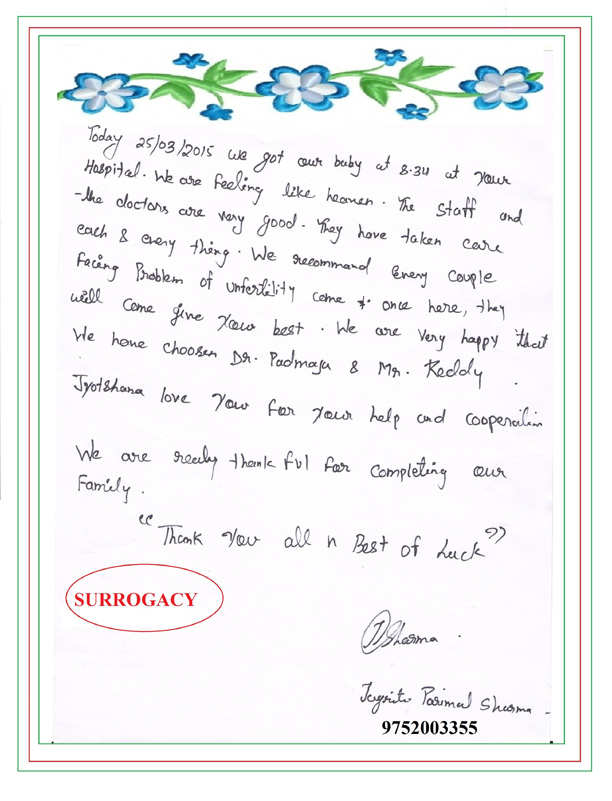 Today 25/03/2015 we got our baby at 8.34 at your
Hospital. We are feeling like heaven. The staff and
the doctors are very good. They have taken care
each & every thing. We recommand Every couple
facing Problem of unfertility come once here, they
will come give your best. We are very happy that
We have choosen Dr. Padmaja & Mr. Reddy.
Jyotshana love you for your help and cooperation
We are really thankful for completing our
Family.
"Thank you all n Best of Luck"
SURROGACY
Sharma.
Parimal Sharma
9752003355